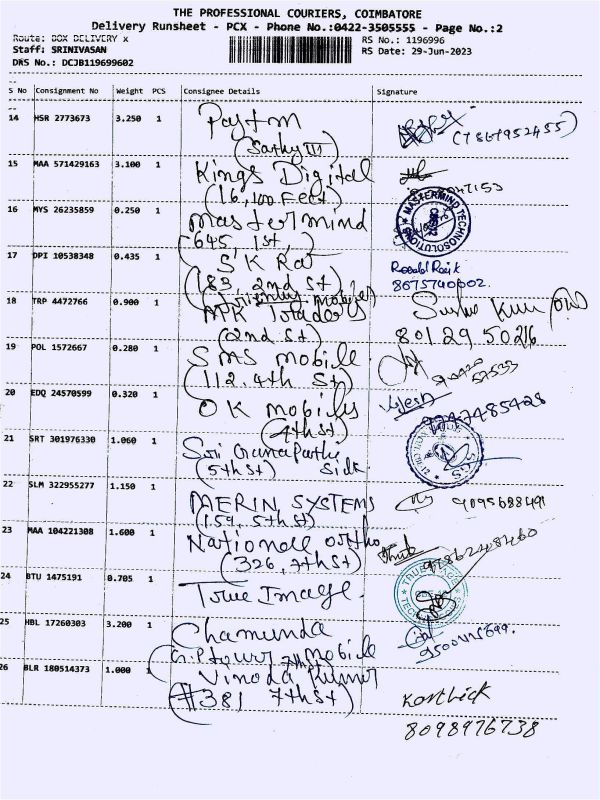 THE PROFESSIONAL COURIERS, COIMBATORE
Delivery Runsheet - PCX - Phone No.:0422-3505555 - Page No.:2
Route: BOX DELIVERY x
RS No.: 1196996
Staff: SRINIVASAN
RS Date: 29-Jun-2023
DRS No.: DCJB119699602
S No Consignment No Weight PCS Consignee Details Signature
14 HSR 2773673 3.250 1 Paytm
(Sathy III) (7867952455)
15 MAA 571429163 3.100 1 Kings Digital
(16, 100 Feet)
16 MYS 26235859 0.250 1 Mastermind MASTERMIND TECHNOSOLUTIONS
(645, 1st,)
17 DPI 10538348 0.435 1 S K Raj
(83, 2nd St) 8675740002.
18 TRP 4472766 0.900 1 APK Traders
(2nd St) 80129 50216
19 POL 1572667 0.280 1 SMS Mobile
(112, 4th St)
20 EDQ 24570599 0.320 1 OK Mobiles
(4th St) 9747485428
21 SRT 301976330 1.060 1 Sri Ganapathi
(5th St) Silk
22 SLM 322955277 1.150 1 MERIN SYSTEMS 9095688491
(159, 5th St)
23 MAA 104221308 1.600 1 National Ortho
(326, 7th St)
24 BTU 1475191 0.705 1 True Image.
25 HBL 17260303 3.200 1 Chamunda
mobile
26 BLR 180514373 1.000 1 Vinoda Kumar
(#381 7th St) Karthick
8098976738